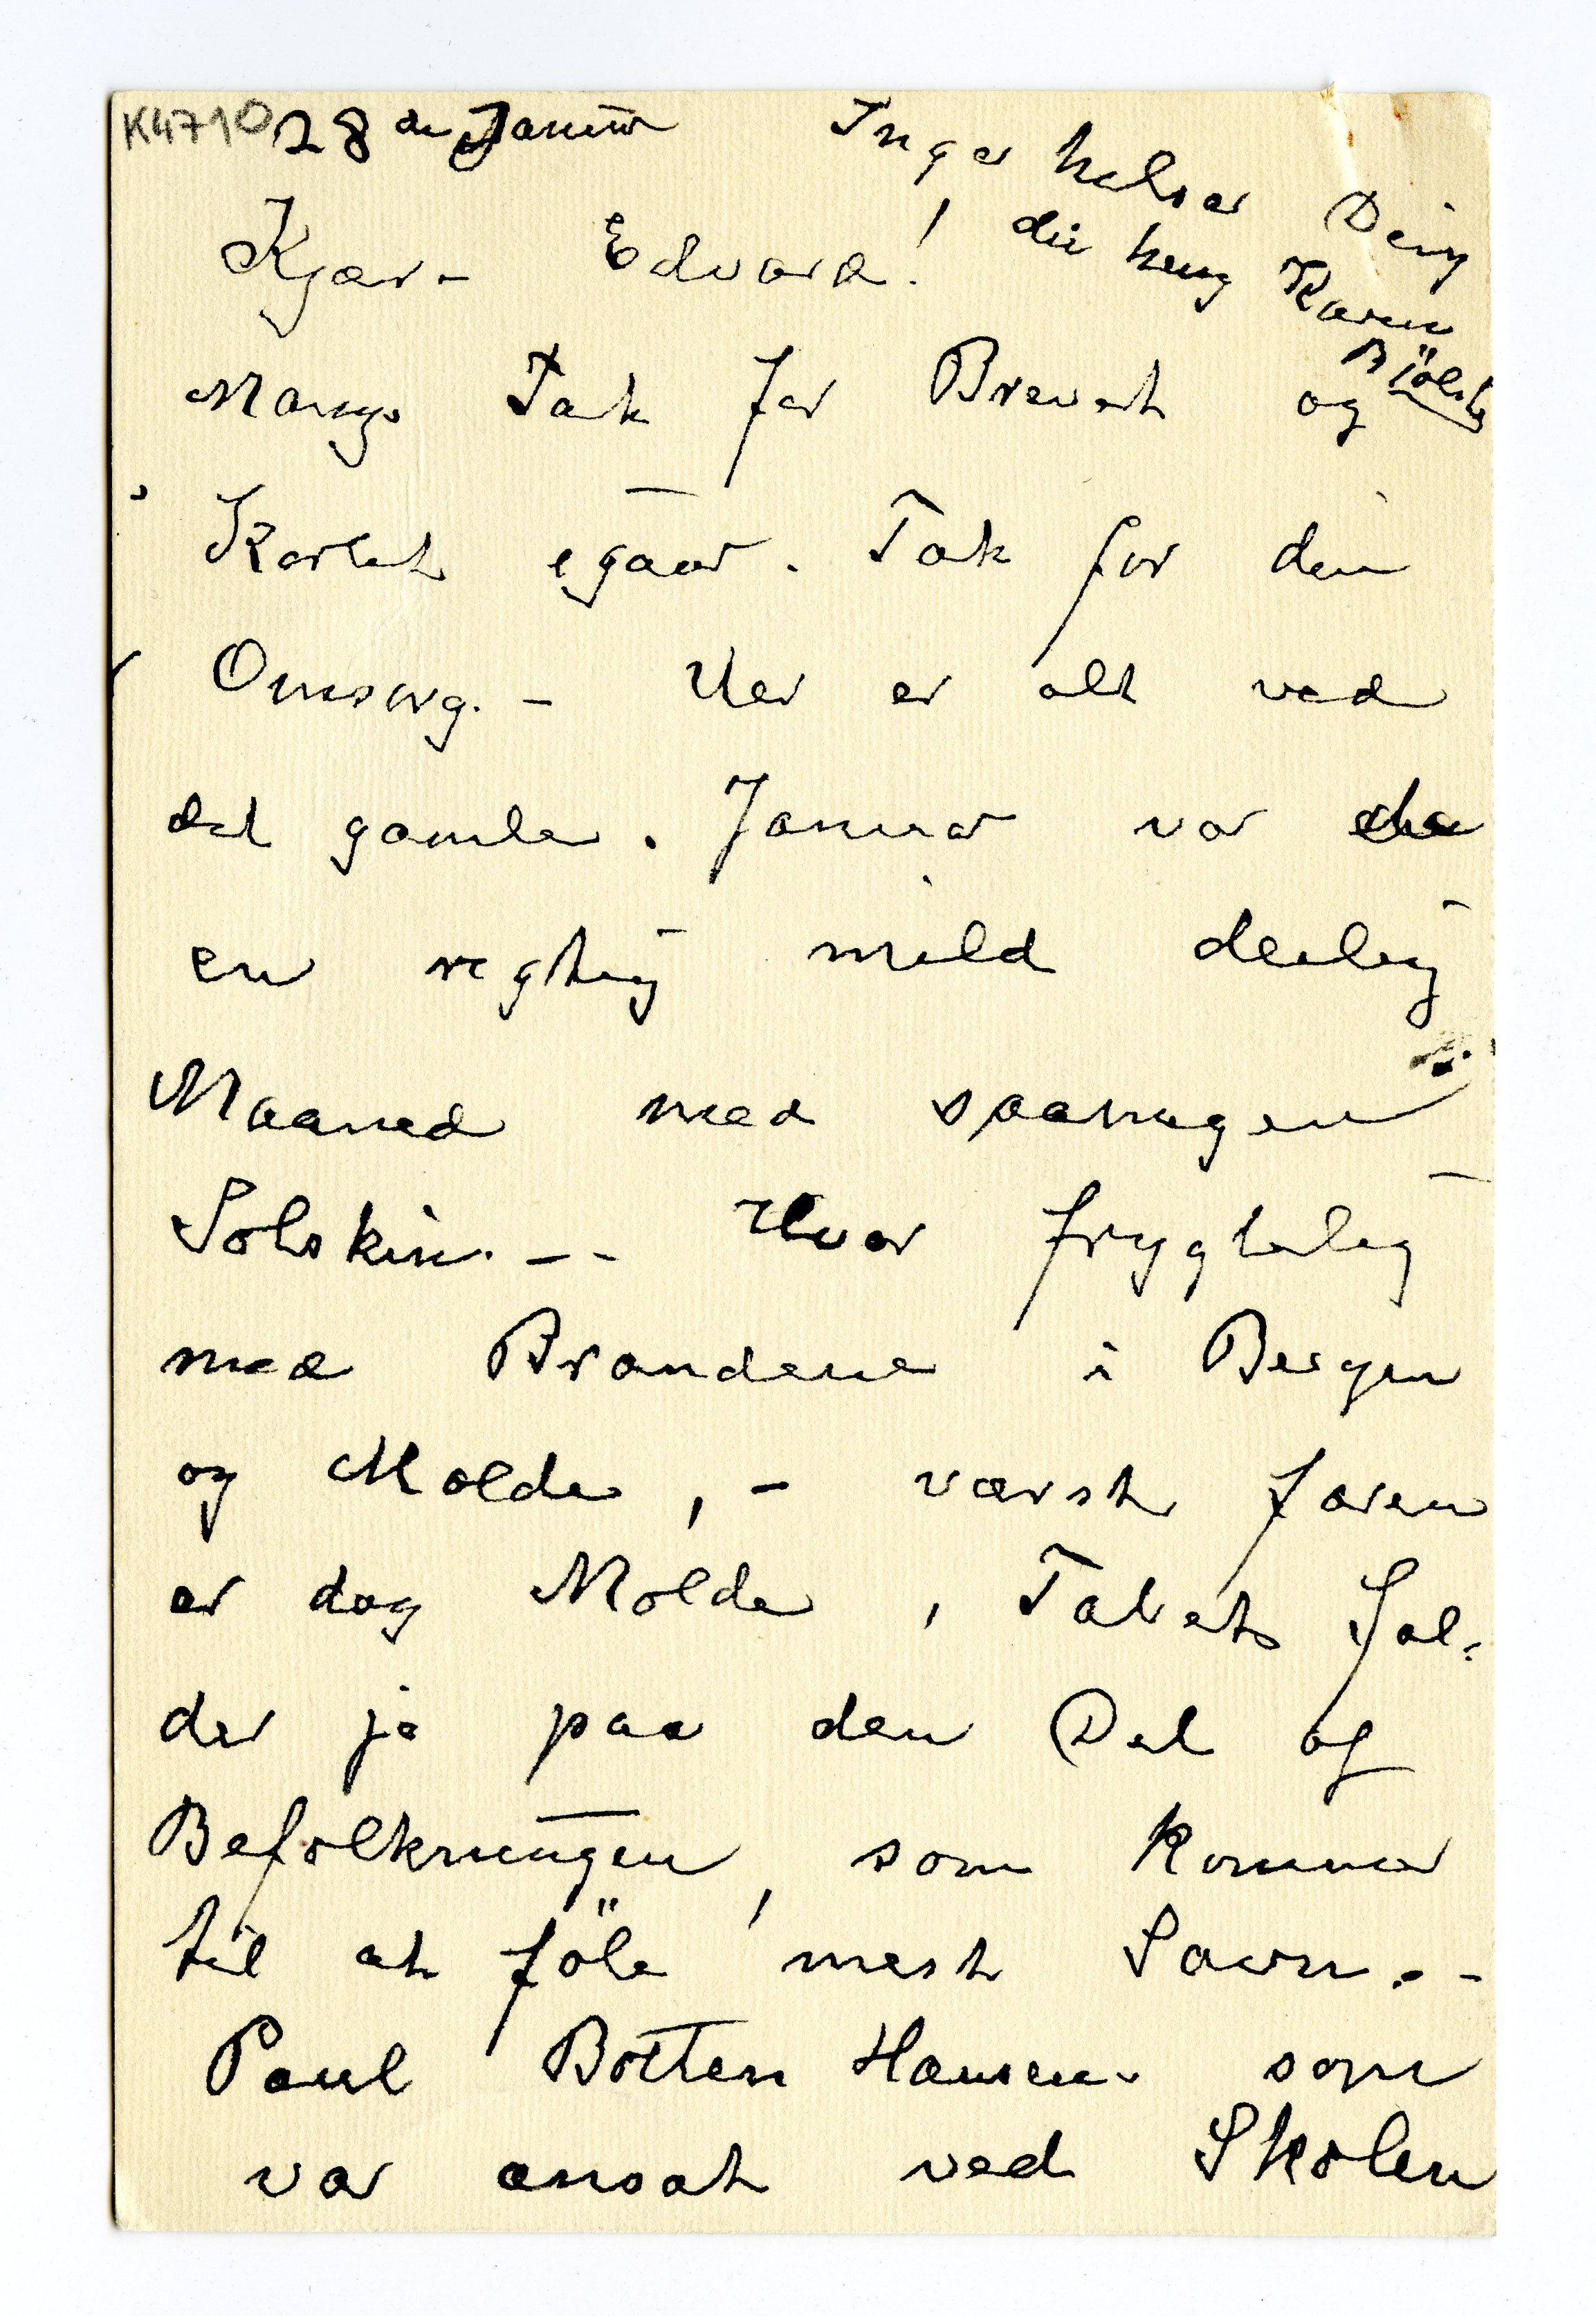 K4710 28 de Januar
Inger helser Deig
din heng. Karen
Bjölstad
Kjære Edvard!
Mange Tak for Brevet og
Kortet igaar. Tak for din
Omsorg. – Her er alt ved
det gamle. Januar var
en regtig mild deilig
Maaned med saamegen
Solskin. – – Hvor frygtelig
med Brandene i Bergen
og Molde, – værst faren
er dog Molde, Tabets fal-
der ja paa den Del af
Befolkningen, som kommer
til at föle mest Savn. –
Paul Botten Hansen som
var ansat ved Skolen